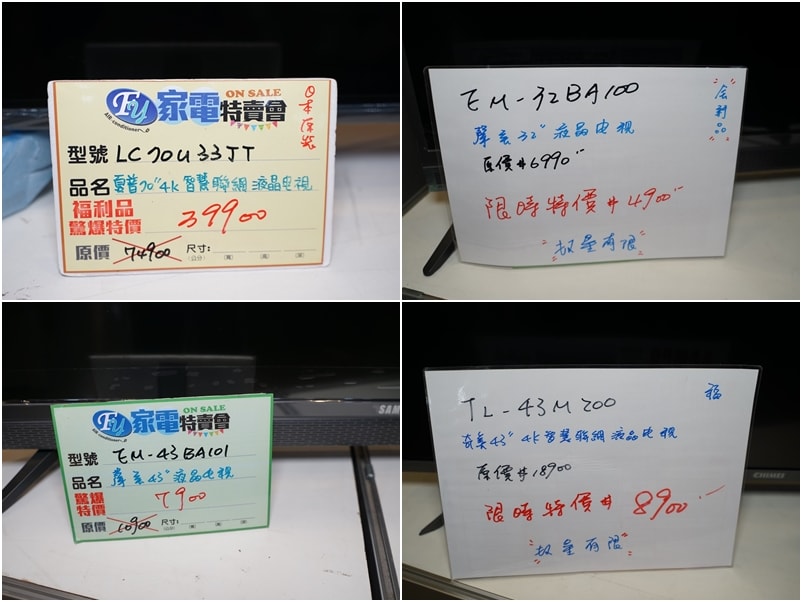 FU 家電 特賣會
ON SALE
AIR conditioner
日本原裝
型號 LC70U33JT
品名 夏普70"4K智慧聯網液晶电視
福利品
驚爆特價 39900
原價 74900 尺寸:
(公分) 寬 高 深
EM-32BA100
福利品
聲寶32"液晶电視
原價$6990
限時特價$4900
数量有限
FU 家電 特賣會
ON SALE
AIR conditioner
SAM
型號 EM-43BA101
品名 聲宝43"液晶电視
驚爆
特價 7900
原價 10900 尺寸:
(公分) 寬 高 深
TL-43M200
福
奇美43"4K智慧聯網液晶电視
原價$18900
CHIMEI
限時特價$8900
数量有限